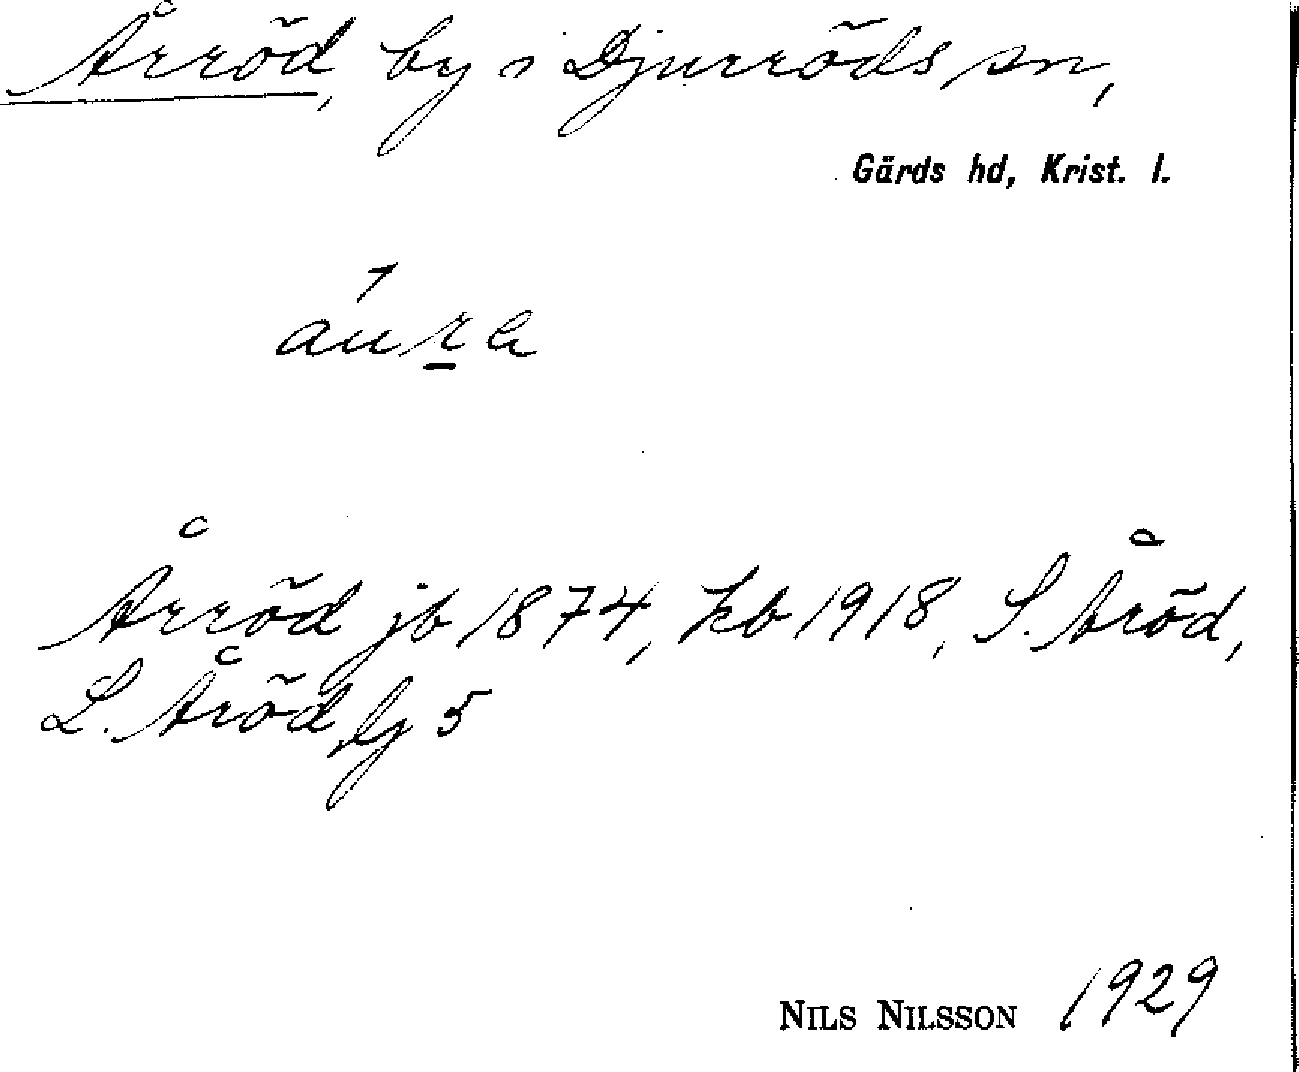 Årröd, by i Djurröds sn,
Gärds hd, Krist. l.
Årröd jb 1874, kb 1918, S. Åröd,
L. Åröd, lj 5
NILS NILSSON 1929